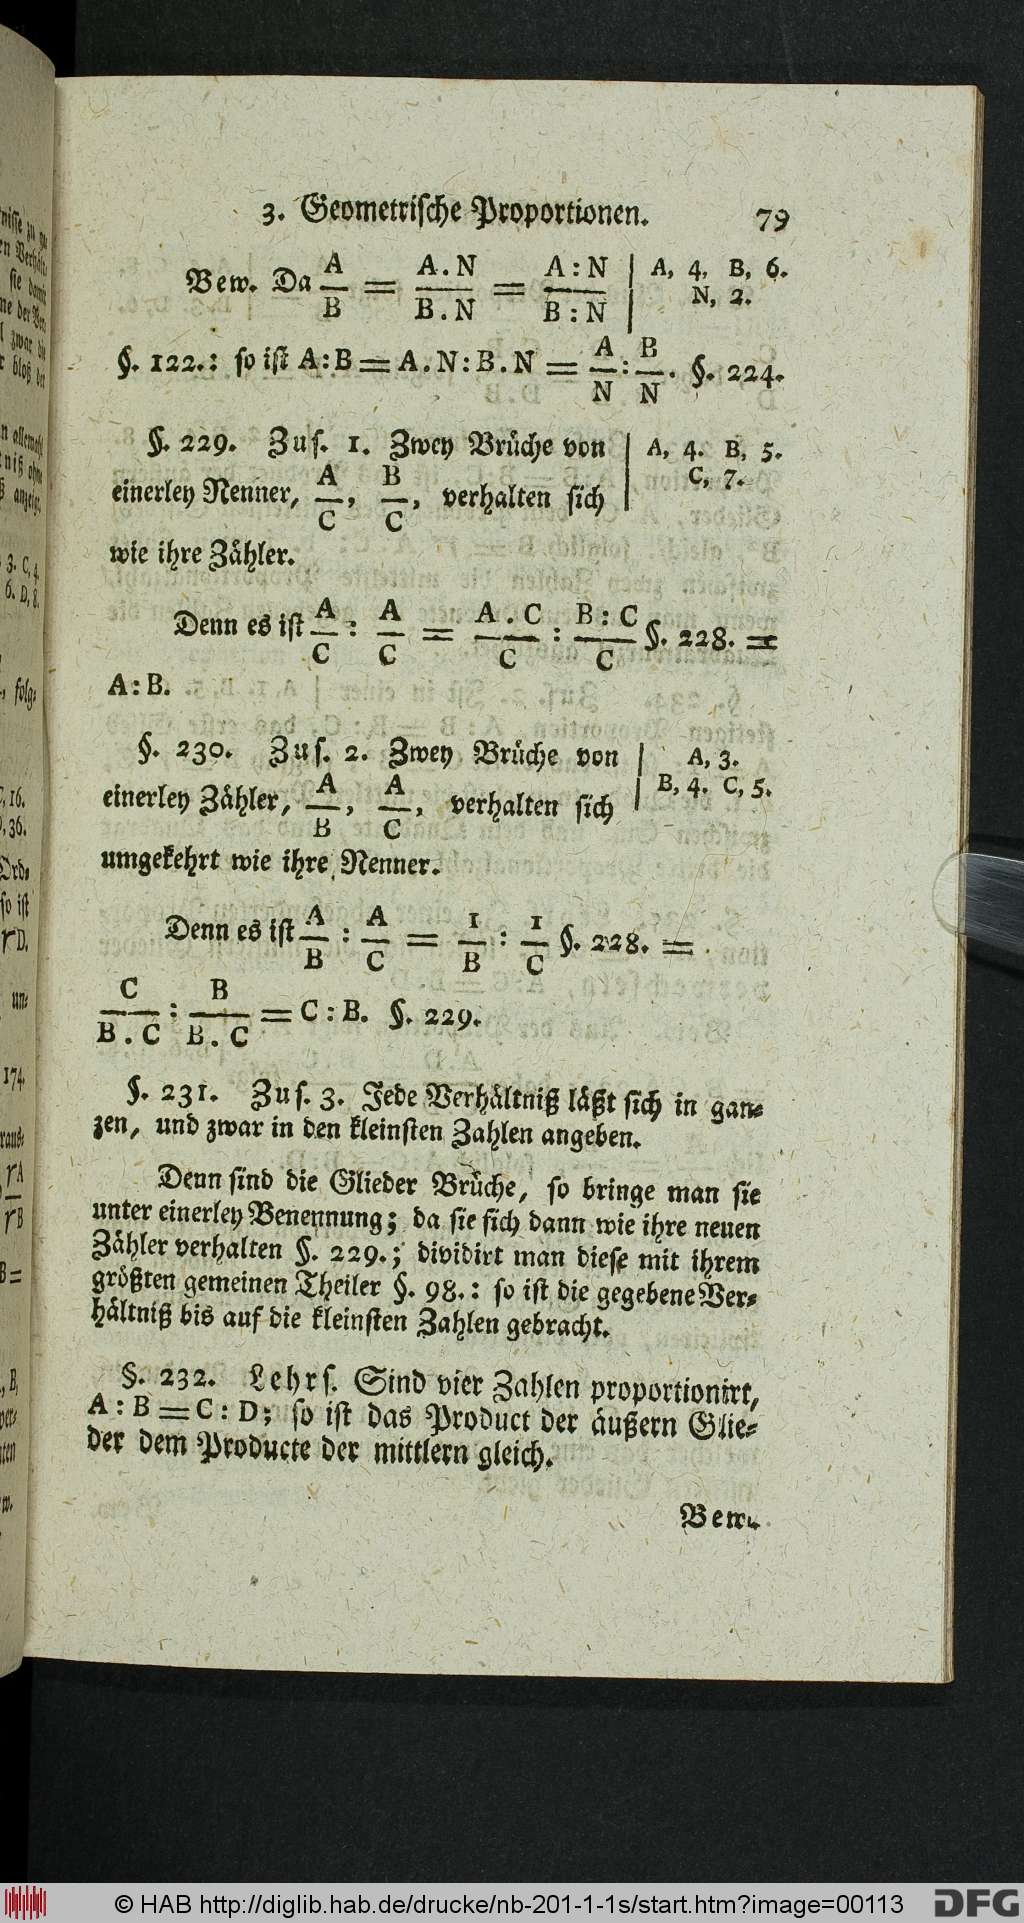 3. Geometrische Proportionen. 79
Bew. Da A/B = A.N/B.N = A:N/B:N | A, 4, B, 6.
N, 2.
§. 122.: so ist A:B = A.N:B.N = A/N : B/N. §. 224.
§. 229. Zus. 1. Zwey Brüche von | A, 4. B, 5.
einerley Nenner, A/C, B/C, verhalten sich | C, 7.
wie ihre Zähler.
Denn es ist A/C : A/C = A.C/C : B:C/C §. 228. =
A:B.
§. 230. Zus. 2. Zwey Brüche von | A, 3.
einerley Zähler, A/B, A/C, verhalten sich | B, 4. C, 5.
umgekehrt wie ihre Nenner.
Denn es ist A/B : A/C = 1/B : 1/C §. 228. =
C/B.C : B/B.C = C:B. §. 229.
§. 231. Zus. 3. Jede Verhältniß läßt sich in gan-
zen, und zwar in den kleinsten Zahlen angeben.
Denn sind die Glieder Brüche, so bringe man sie
unter einerley Benennung; da sie sich dann wie ihre neuen
Zähler verhalten §. 229.; dividirt man diese mit ihrem
größten gemeinen Theiler §. 98.: so ist die gegebene Ver-
hältniß bis auf die kleinsten Zahlen gebracht.
§. 232. Lehrs. Sind vier Zahlen proportionirt,
A:B = C:D; so ist das Product der äußern Glie-
der dem Producte der mittlern gleich.
Bew.
© HAB http://diglib.hab.de/drucke/nb-201-1-1s/start.htm?image=00113 DFG